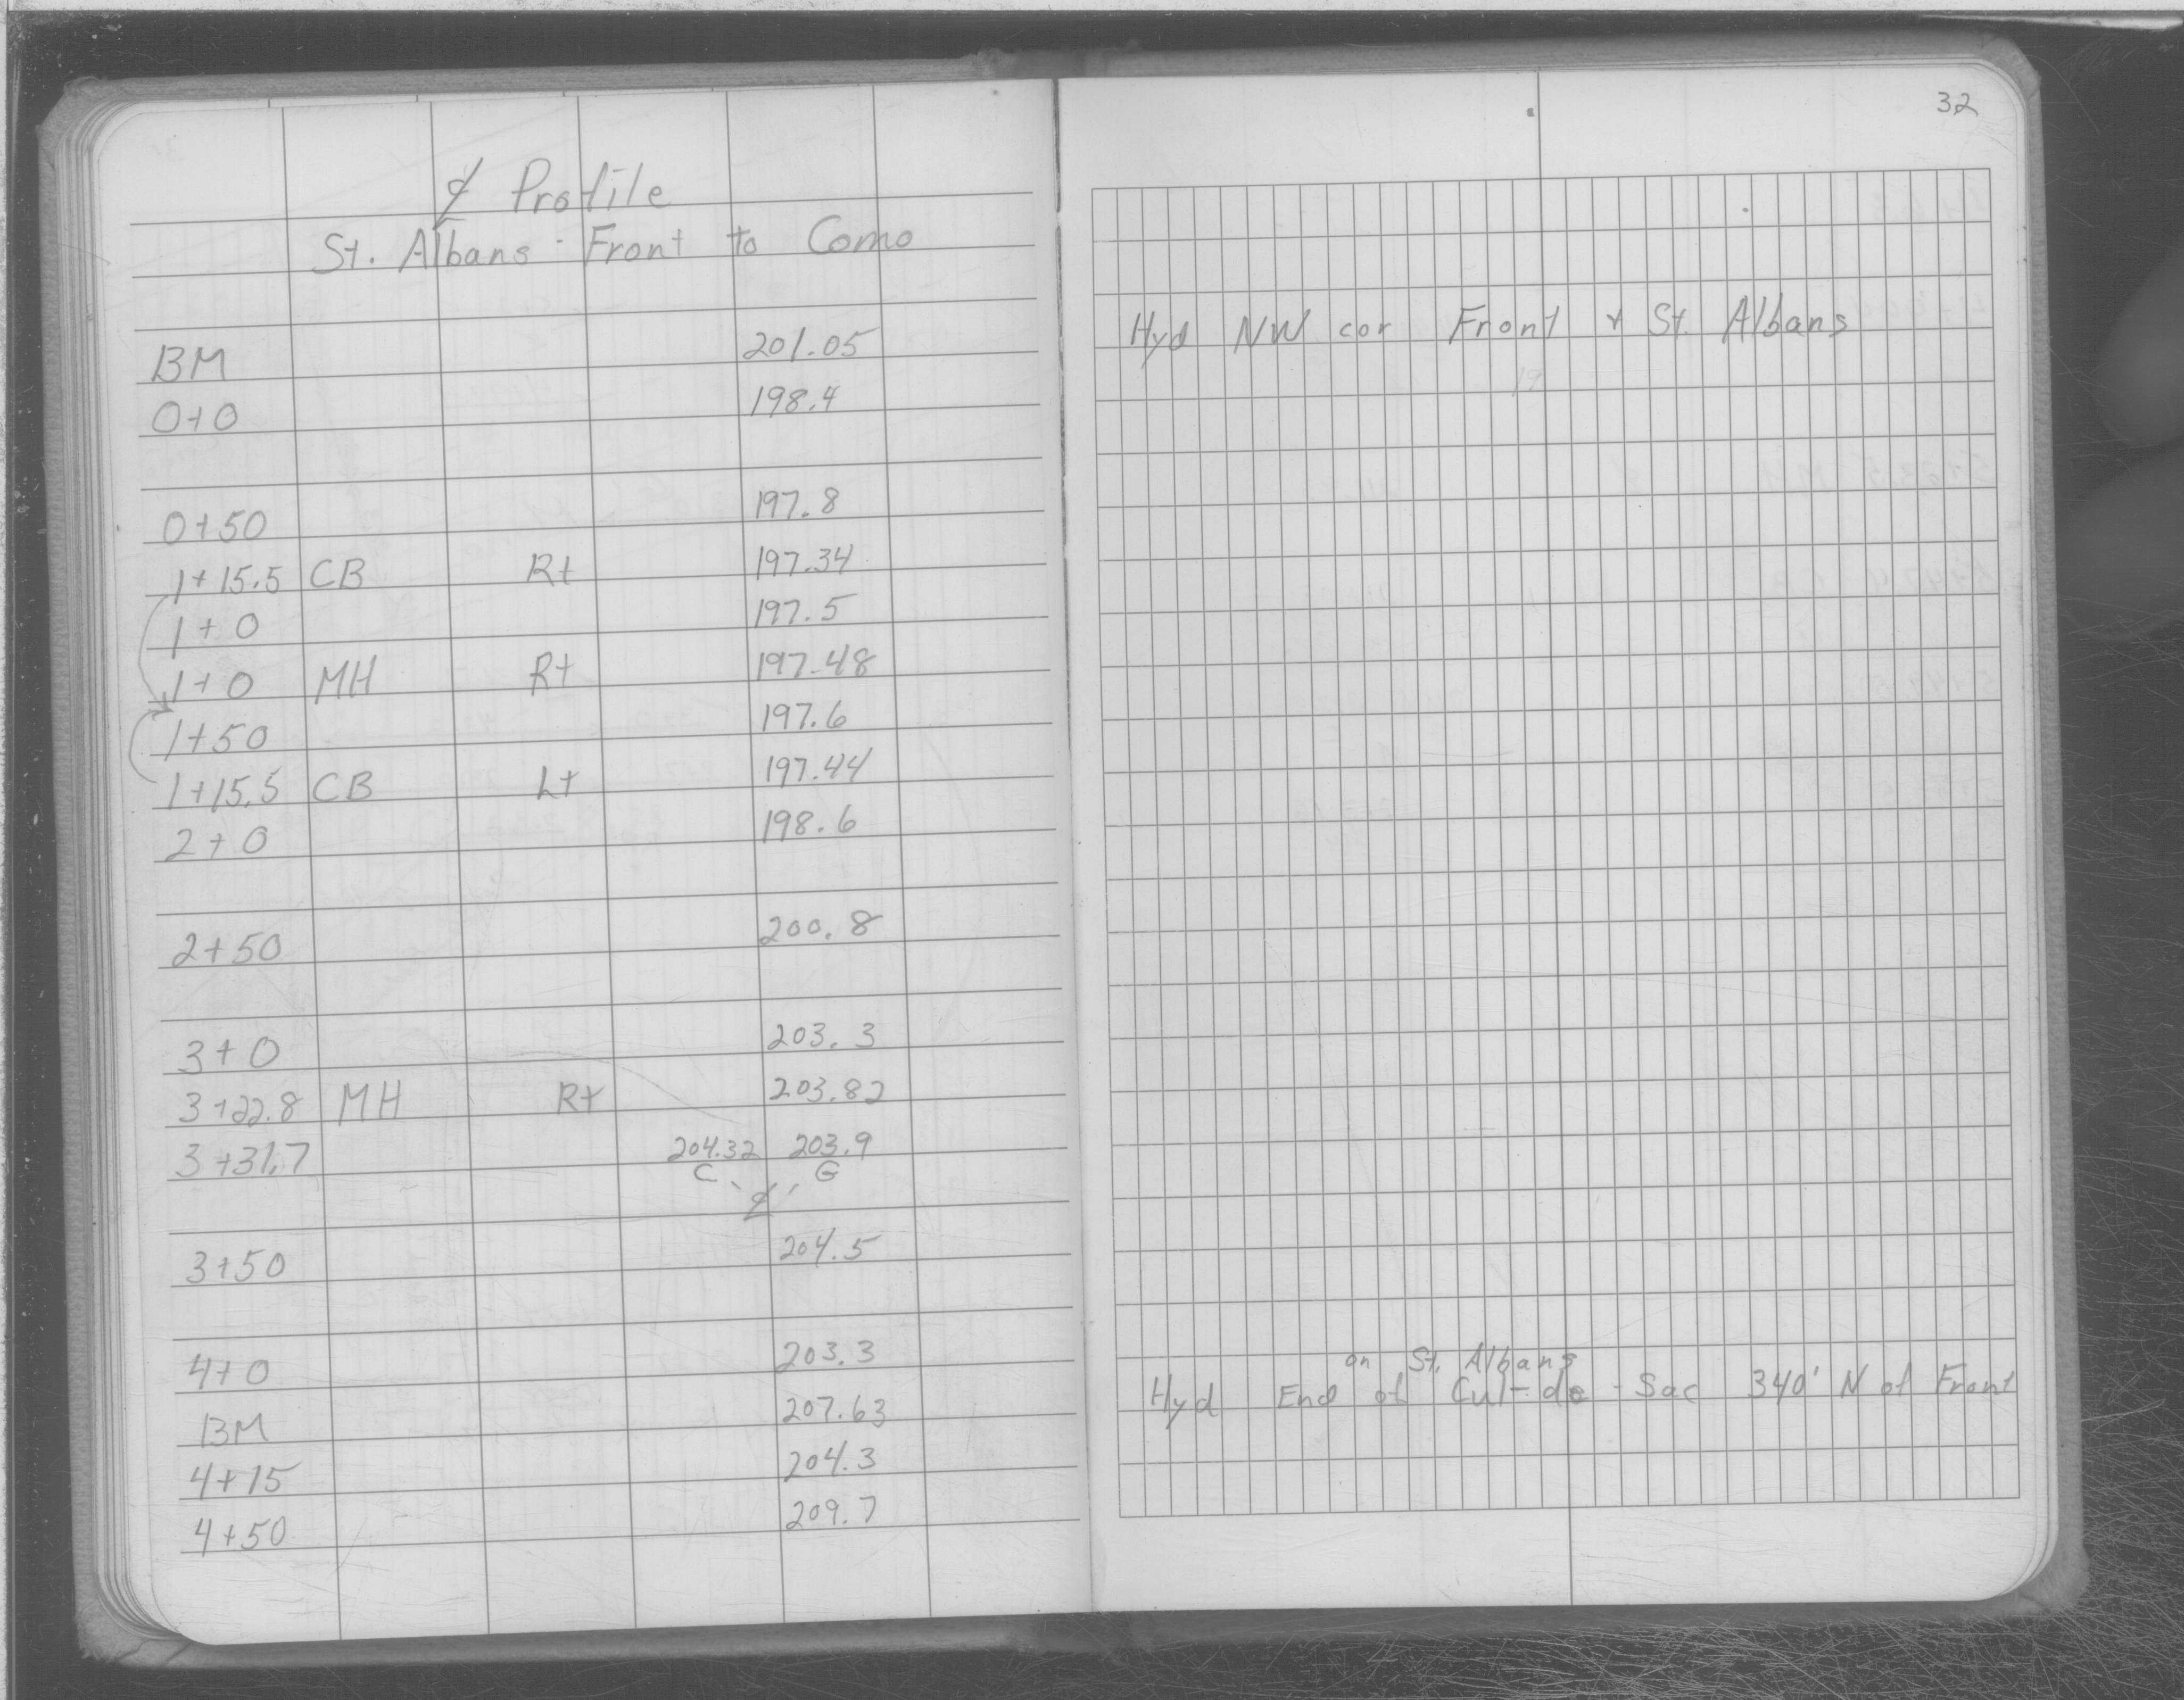 32
℄ Profile
St. Albans - Front to Como
BM 201.05 Hyd NW cor Front & St. Albans
0+0 198.4
0+50 197.8
1+15.5 CB Rt 197.34
1+0 197.5
1+0 MH Rt 197.48
1+50 197.6
1+15.5 CB Lt 197.44
2+0 198.6
2+50 200.8
3+0 203.3
3+22.8 MH Rt 203.82
3+31.7 204.32 203.9
C G
℄
3+50 204.5
4+0 203.3
on St. Albans
BM 207.63 Hyd End of Cul-de-Sac 340' N of Front
4+15 204.3
4+50 209.7